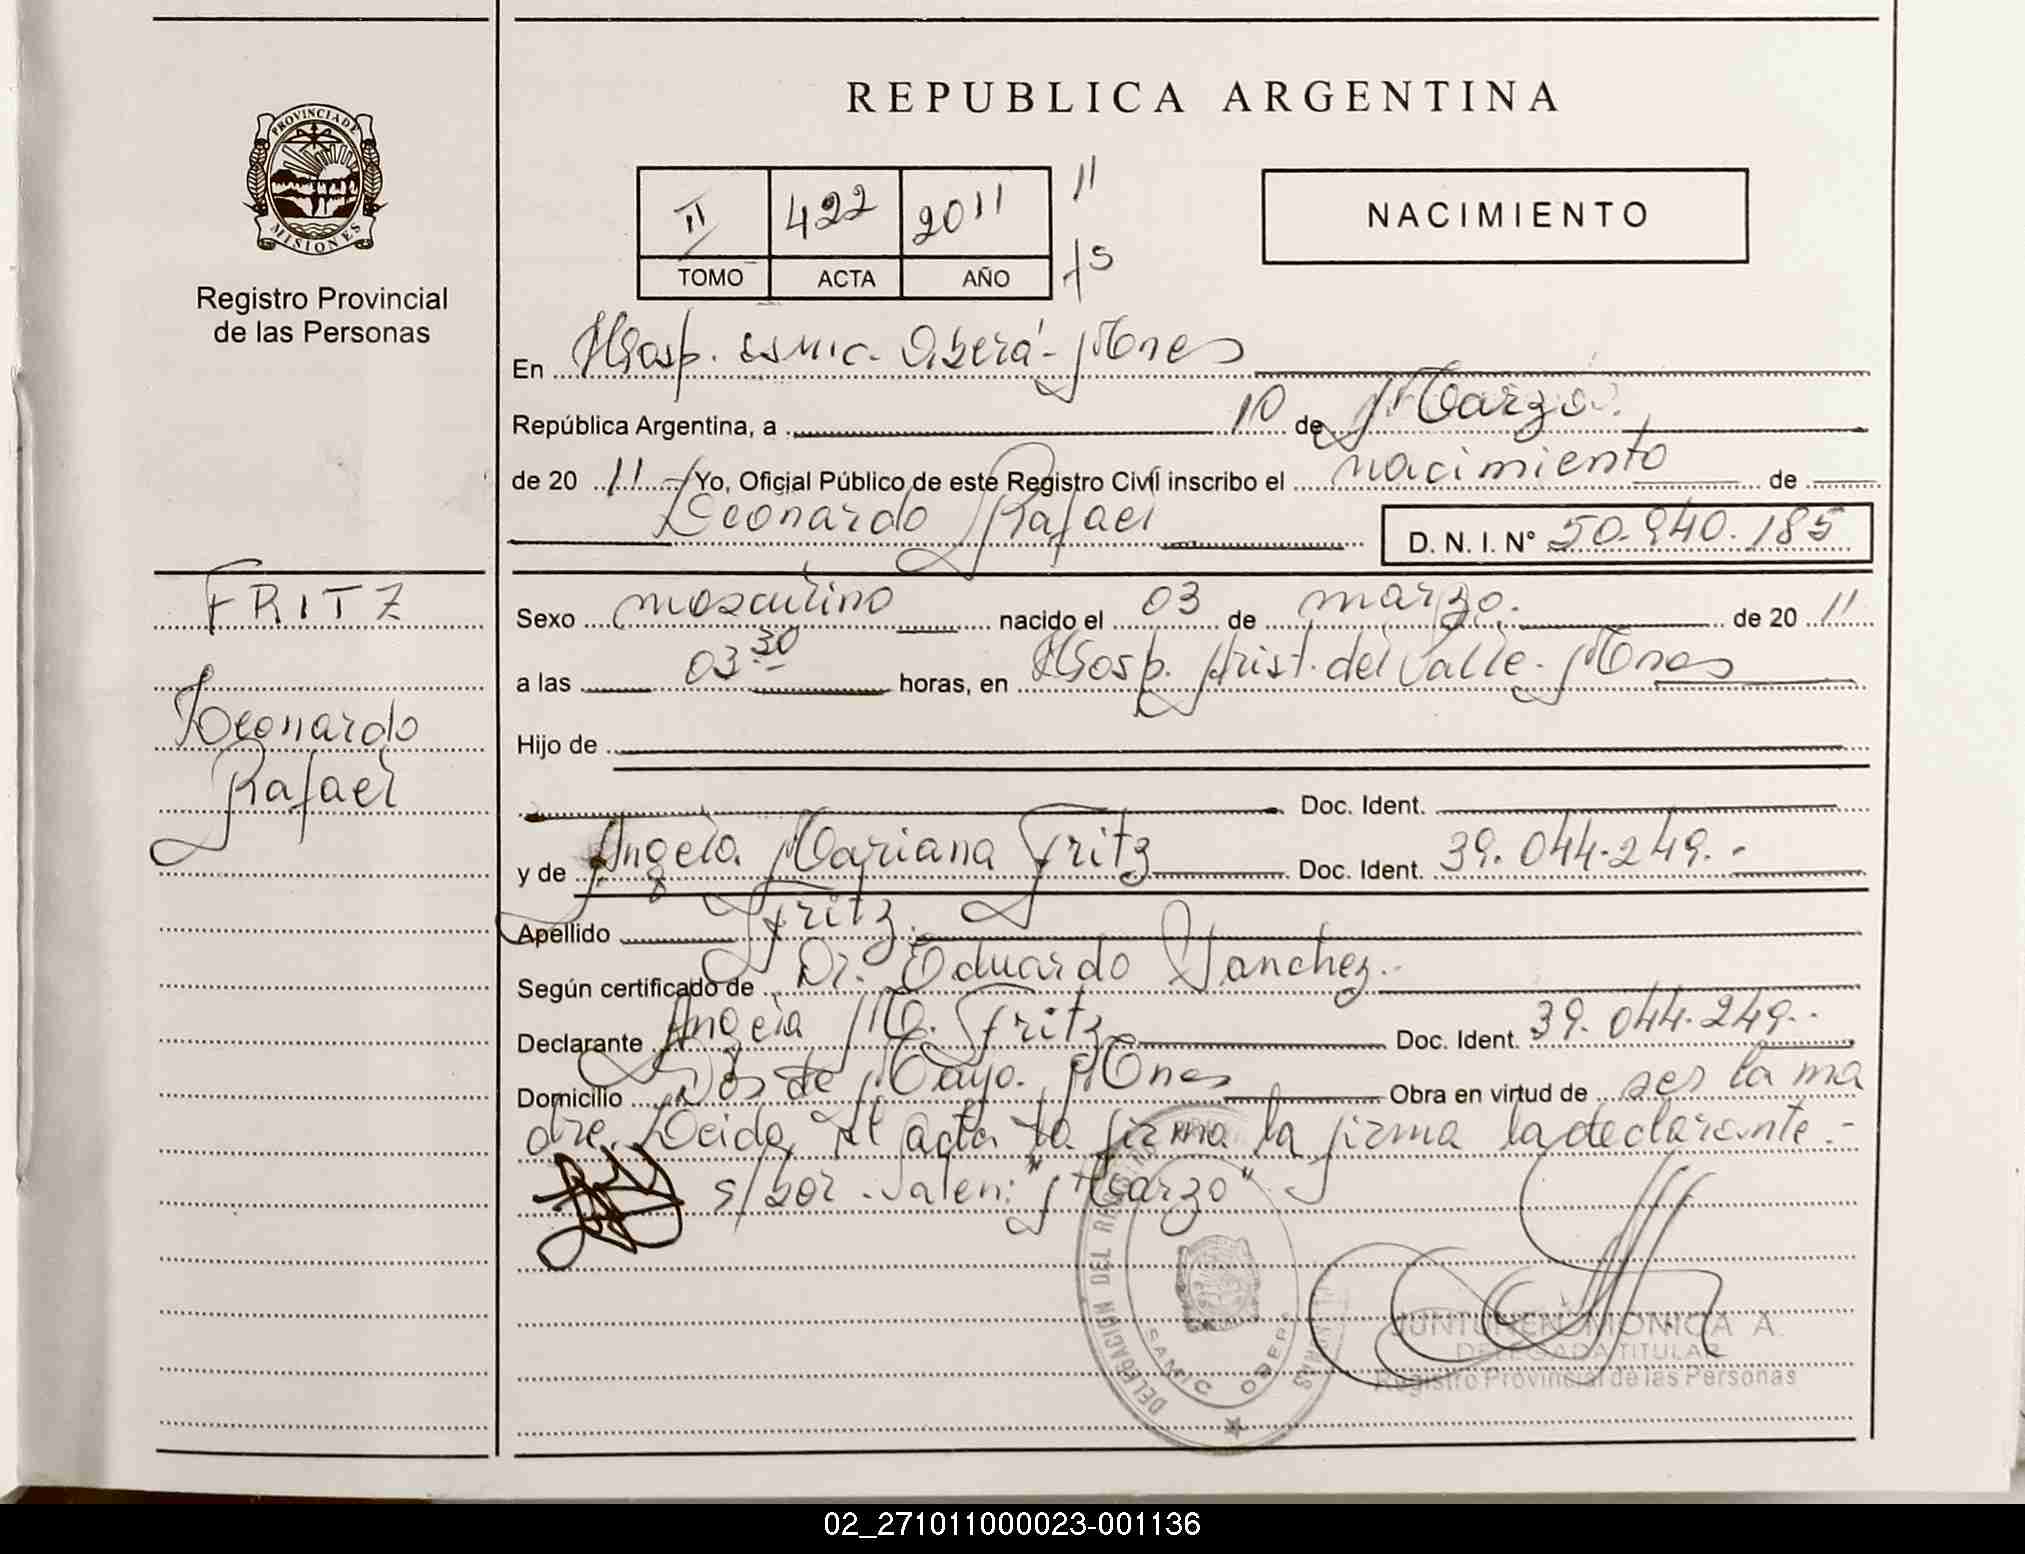 REPUBLICA ARGENTINA
PROVINCIA DE
MISIONES
Registro Provincial
de las Personas
II 422 2011 11
TOMO ACTA AÑO
NACIMIENTO
En Hosp. ssmic. Oberá - Mnes
República Argentina, a 10 de Marzo.
de 20 11 Yo, Oficial Público de este Registro Civil inscribo el nacimiento de
Leonardo Rafael D. N. I. N° 50.940.185
FRITZ
Leonardo
Rafael
Sexo masculino nacido el 03 de marzo. de 20 11
a las 03 30 horas, en Hosp. Arist. del Valle - Mnes
Hijo de
Doc. Ident.
y de Angela Mariana Fritz Doc. Ident. 39.044.249.-
Apellido Fritz.
Según certificado de Dr. Eduardo Sanchez.-
Declarante Angela M. Fritz Doc. Ident. 39.044.249.-
Domicilio Dos de Mayo. Mnes Obra en virtud de ser la ma
dre. Leida el acta la firma la firma la declarante.-
s/bor. Valen: "Marzo"
DELEGACION DEL
SAMIC OBERA
MISIONES
JUNTUNEN MONICA A.
DELEGADA TITULAR
Registro Provincial de las Personas
02_271011000023-001136